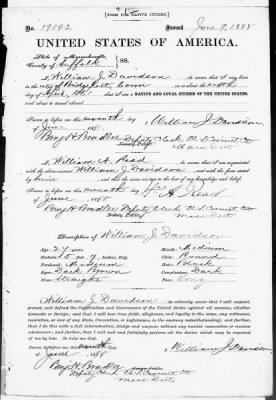 [FORM FOR NATIVE CITIZEN.]
No. 19092 Issued June 9, 1888
UNITED STATES OF AMERICA.
State of Massachusetts,
County of Suffolk } ss.
I, William J. Davidson, do swear that I was born
in the city of Bridgeport, Conn on the
that I am a NATIVE AND LOYAL CITIZEN OF THE UNITED STATES,
and about to travel abroad.
Sworn to before me this seventh day William J. Davidson
of June 1888
Benj. H. Bradlee Deputy Clerk U.S. Circuit Ct
Notary Public. Mass Dist
I, William A. Read, do swear that I am acquainted
with the above-named William J. Davidson and with the facts stated
by him and that the same are true to the best of my knowledge and belief.
Sworn to before me this seventh day A. Read
of June 1888
Benj. H. Bradlee Deputy Clerk U.S. Circuit Ct
Notary Public. Mass Dist
Description of William J. Davidson
Age: 27 years. Mouth: Medium
Stature: 5 feet 9 inches, Eng. Chin: Round
Forehead: Medium Hair: Black
Eyes: Dark Brown Complexion: Dark
Nose: Straight Face: Long
I, William J. Davidson, do solemnly swear that I will support,
protect, and defend the Constitution and Government of the United States against all enemies, whether
domestic or foreign; and that I will bear true faith, allegiance, and loyalty to the same, any ordinance,
resolution, or law of any State, Convention, or Legislature, to the contrary notwithstanding; and further,
that I do this with a full determination, pledge, and purpose, without any mental reservation or evasion
whatsoever; and further, that I will well and faithfully perform all the duties which may be required
of me by law. So help me God.
Sworn to before me this seventh day William J. Davidson
of June 1888
Benj. H. Bradlee Notary Public.
Deputy Clerk U.S. Circuit Ct
Mass Dist